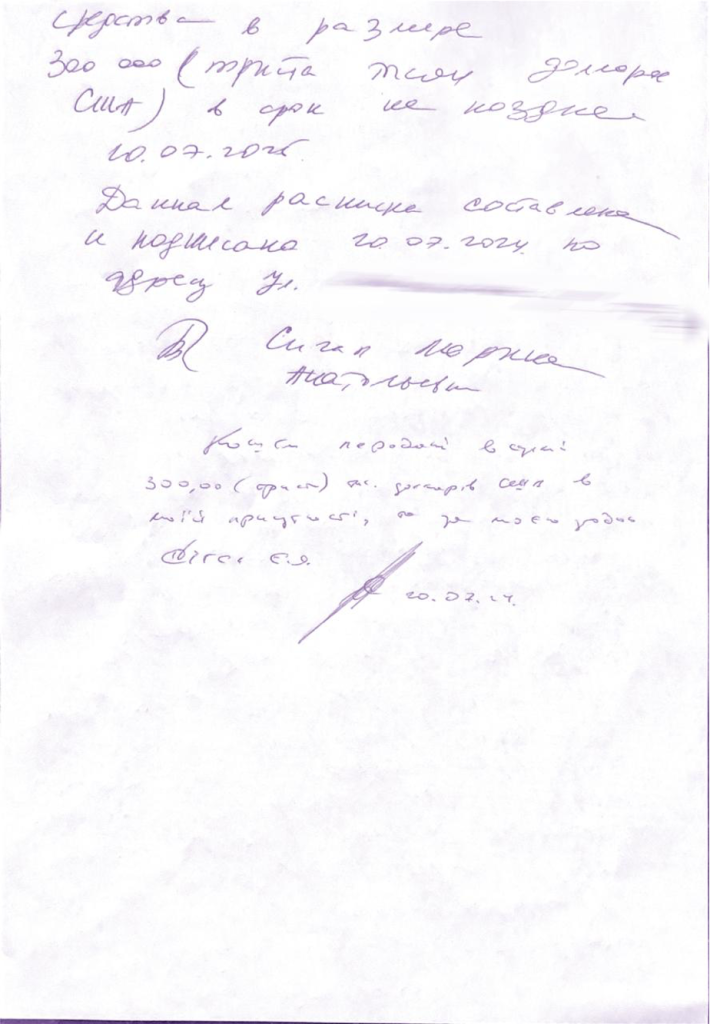 средства в размере
300 000 (триста тысяч долларов
США) в срок не позднее
Данная расписка составлена
и подписана 20.07.2024 по
адресу ул.
Сигал Марина
Анатольевна
Кошти передані в сумі
300,00 (триста) тис. доларів США в
моїй присутності, та за моєю згодою
Є.Я.
20.07.24.